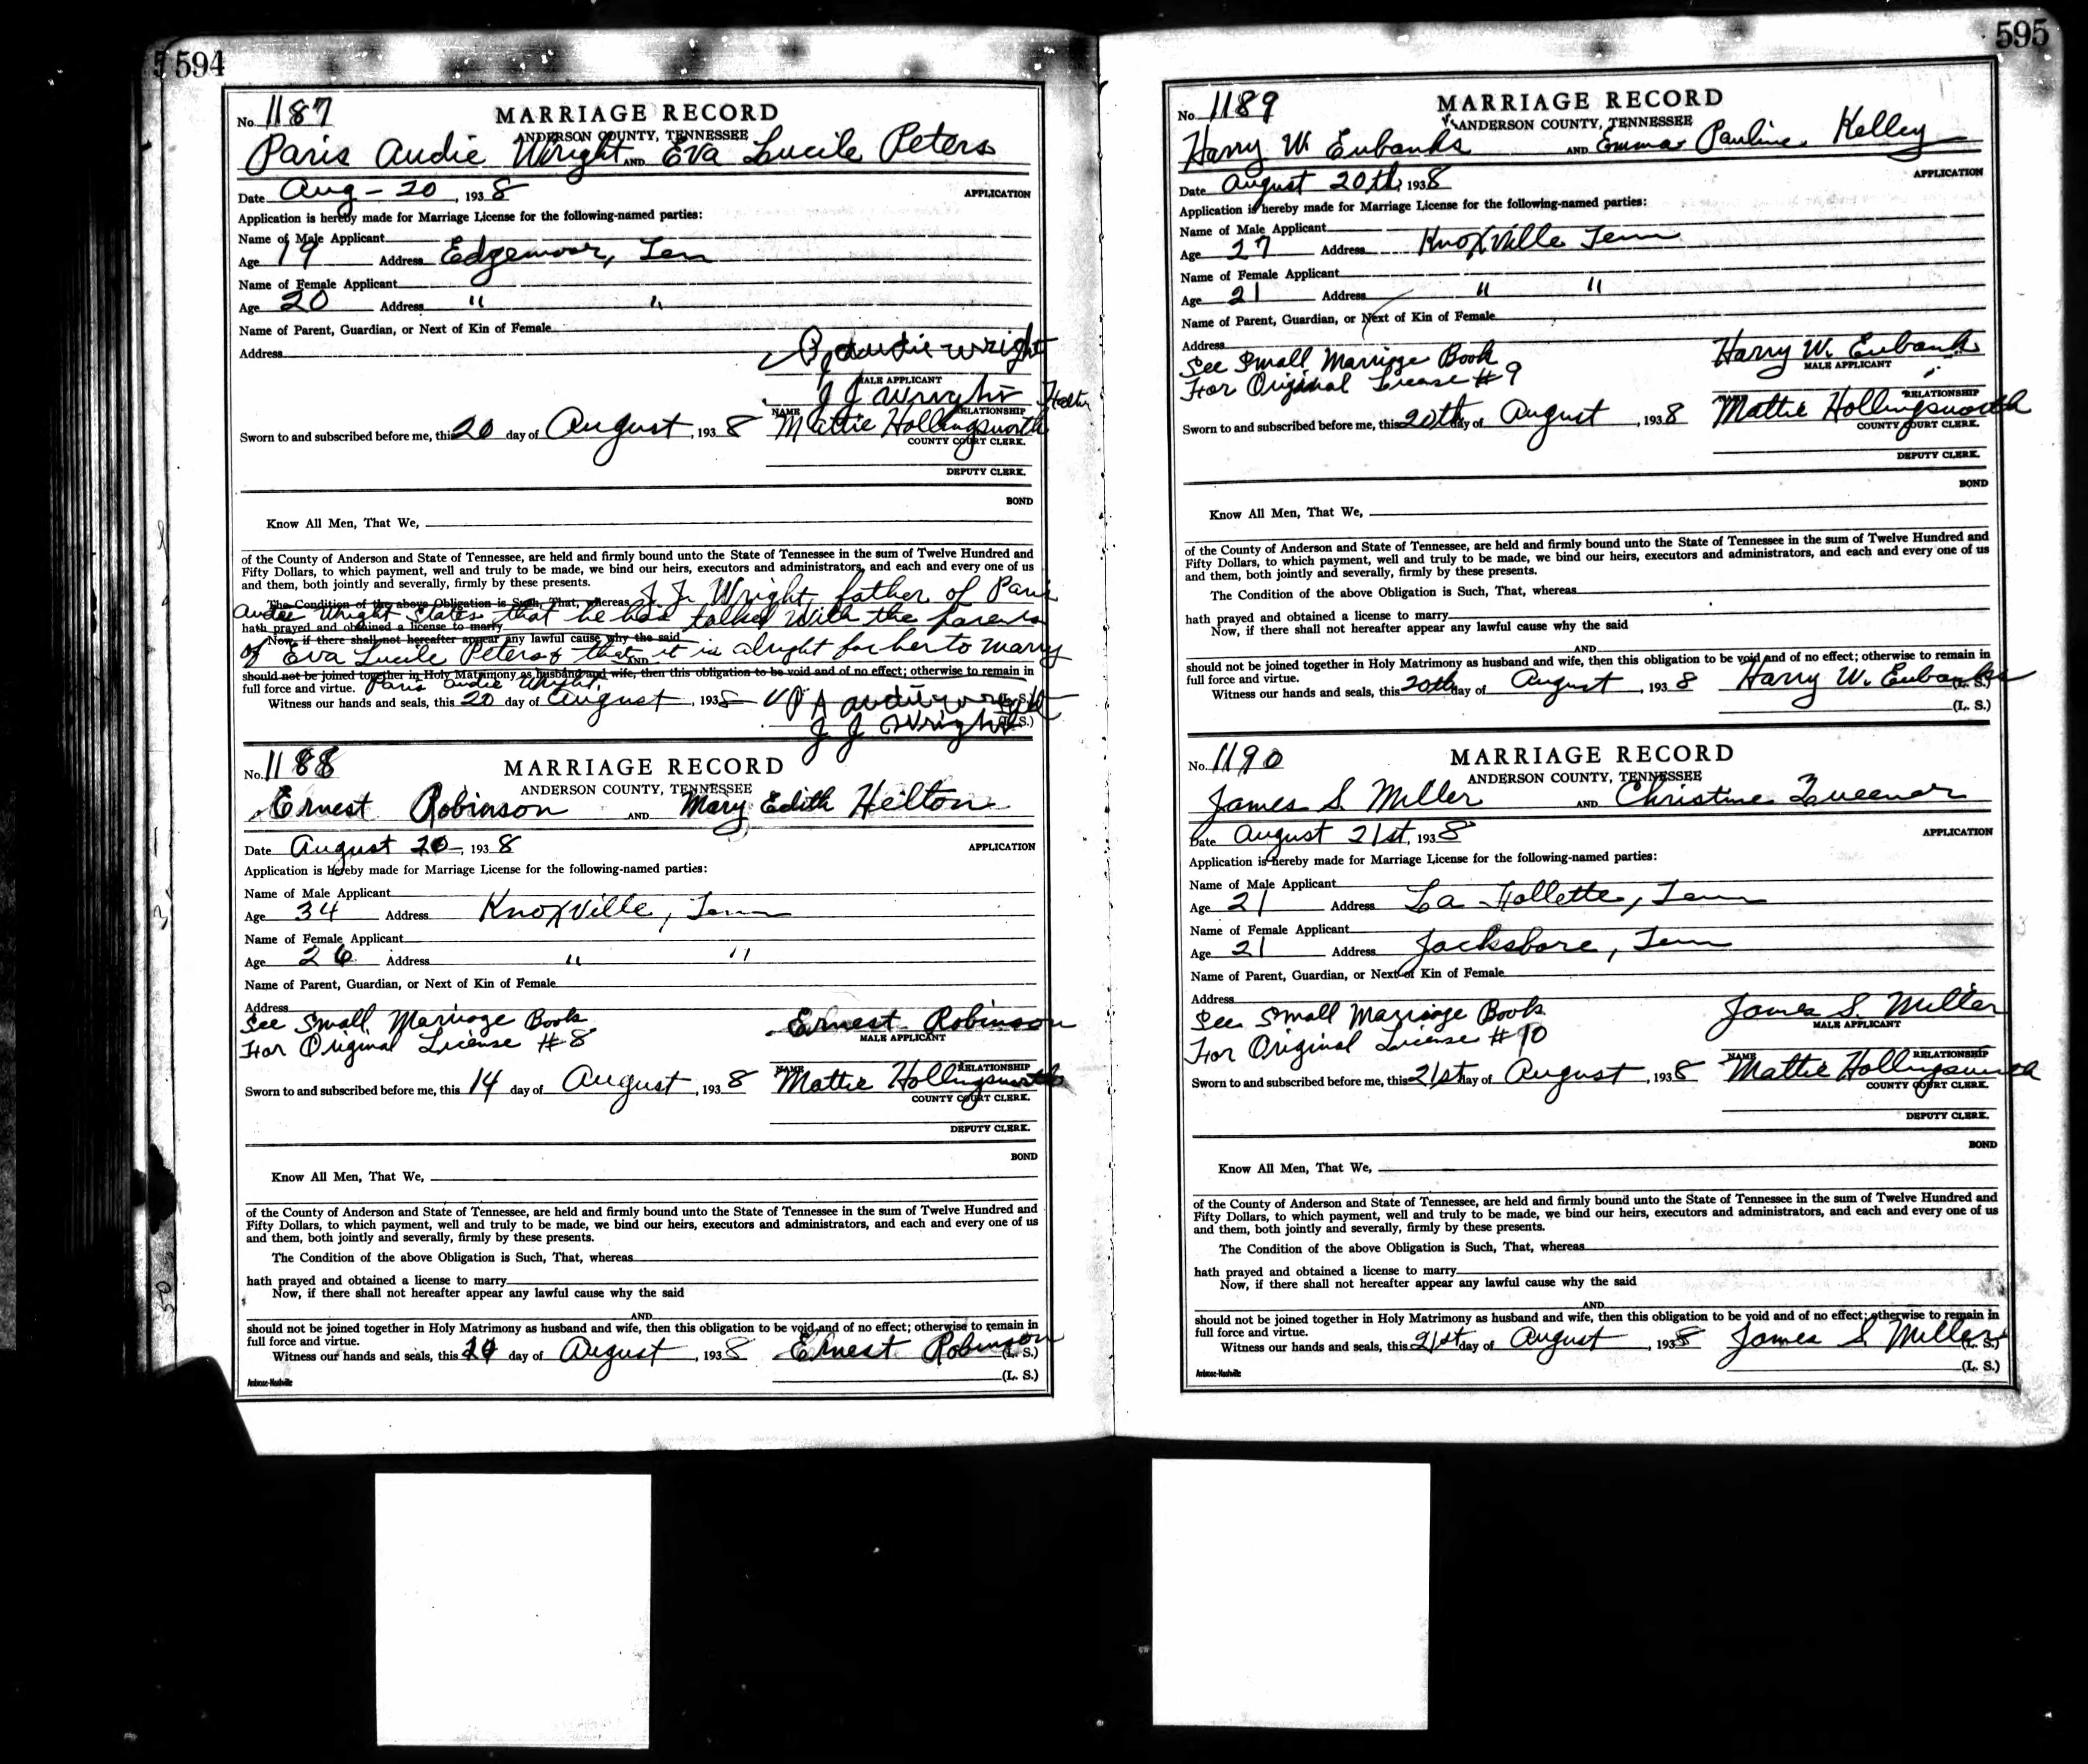 594
No. 1187
MARRIAGE RECORD
ANDERSON COUNTY, TENNESSEE
Paris Audie Wright AND Eva Lucile Peters
Date Aug - 20, 1938
APPLICATION
Application is hereby made for Marriage License for the following-named parties:
Name of Male Applicant
Age 19 Address Edgemoor, Ten
Name of Female Applicant
Age 20 Address " "
Name of Parent, Guardian, or Next of Kin of Female
Address
P Audie Wright
MALE APPLICANT
J J Wright Father
NAME RELATIONSHIP
Sworn to and subscribed before me, this 20 day of August, 1938 Mattie Hollingsworth
COUNTY COURT CLERK.
DEPUTY CLERK.
BOND
Know All Men, That We,
of the County of Anderson and State of Tennessee, are held and firmly bound unto the State of Tennessee in the sum of Twelve Hundred and
Fifty Dollars, to which payment, well and truly to be made, we bind our heirs, executors and administrators, and each and every one of us
and them, both jointly and severally, firmly by these presents.
The Condition of the above Obligation is Such, That, whereas J J Wright, father of Paris
Audie Wright States that he has talked with the parents
hath prayed and obtained a license to marry
Now, if there shall not hereafter appear any lawful cause why the said
of Eva Lucile Peters & that it is alright for her to marry
AND
should not be joined together in Holy Matrimony as husband and wife, then this obligation to be void and of no effect; otherwise to remain in
full force and virtue. Paris Audie Wright.
Witness our hands and seals, this 20 day of August, 1938 P A Audie Wright (L. S.)
J J Wright (L. S.)
No. 1188
MARRIAGE RECORD
ANDERSON COUNTY, TENNESSEE
Ernest Robinson AND Mary Edith Helton
Date August 20-, 1938
APPLICATION
Application is hereby made for Marriage License for the following-named parties:
Name of Male Applicant
Age 34 Address Knoxville, Tenn
Name of Female Applicant
Age 26 Address " "
Name of Parent, Guardian, or Next of Kin of Female
Address
See Small Marriage Book
For Original License # 8
Ernest Robinson
MALE APPLICANT
NAME RELATIONSHIP
Sworn to and subscribed before me, this 14 day of August, 1938 Mattie Hollingsworth
COUNTY COURT CLERK.
DEPUTY CLERK.
BOND
Know All Men, That We,
of the County of Anderson and State of Tennessee, are held and firmly bound unto the State of Tennessee in the sum of Twelve Hundred and
Fifty Dollars, to which payment, well and truly to be made, we bind our heirs, executors and administrators, and each and every one of us
and them, both jointly and severally, firmly by these presents.
The Condition of the above Obligation is Such, That, whereas
hath prayed and obtained a license to marry
Now, if there shall not hereafter appear any lawful cause why the said
AND
should not be joined together in Holy Matrimony as husband and wife, then this obligation to be void and of no effect; otherwise to remain in
full force and virtue.
Witness our hands and seals, this day of August, 1938 Ernest Robinson (L. S.)
(L. S.)
Ambrose-Nashville
595
No. 1189
MARRIAGE RECORD
ANDERSON COUNTY, TENNESSEE
Harry W. Eubanks AND Emma Pauline Kelley
Date August 20th, 1938
APPLICATION
Application is hereby made for Marriage License for the following-named parties:
Name of Male Applicant
Age 27 Address Knoxville Tenn
Name of Female Applicant
Age 21 Address " "
Name of Parent, Guardian, or Next of Kin of Female
Address
See Small Marriage Book
For Original License # 9
Harry W. Eubanks
MALE APPLICANT
RELATIONSHIP
Sworn to and subscribed before me, this 20th day of August, 1938 Mattie Hollingsworth
COUNTY COURT CLERK.
DEPUTY CLERK.
BOND
Know All Men, That We,
of the County of Anderson and State of Tennessee, are held and firmly bound unto the State of Tennessee in the sum of Twelve Hundred and
Fifty Dollars, to which payment, well and truly to be made, we bind our heirs, executors and administrators, and each and every one of us
and them, both jointly and severally, firmly by these presents.
The Condition of the above Obligation is Such, That, whereas
hath prayed and obtained a license to marry
Now, if there shall not hereafter appear any lawful cause why the said
AND
should not be joined together in Holy Matrimony as husband and wife, then this obligation to be void and of no effect; otherwise to remain in
full force and virtue.
Witness our hands and seals, this 20th day of August, 1938 Harry W. Eubanks (L. S.)
(L. S.)
No. 1190
MARRIAGE RECORD
ANDERSON COUNTY, TENNESSEE
James S. Miller AND Christine Queener
Date August 21st, 1938
APPLICATION
Application is hereby made for Marriage License for the following-named parties:
Name of Male Applicant
Age 21 Address La Follette, Tenn
Name of Female Applicant
Age 21 Address Jacksboro, Tenn
Name of Parent, Guardian, or Next of Kin of Female
Address
See Small Marriage Book
For Original License # 10
James S. Miller
MALE APPLICANT
NAME RELATIONSHIP
Sworn to and subscribed before me, this 21st day of August, 1938 Mattie Hollingsworth
COUNTY COURT CLERK.
DEPUTY CLERK.
BOND
Know All Men, That We,
of the County of Anderson and State of Tennessee, are held and firmly bound unto the State of Tennessee in the sum of Twelve Hundred and
Fifty Dollars, to which payment, well and truly to be made, we bind our heirs, executors and administrators, and each and every one of us
and them, both jointly and severally, firmly by these presents.
The Condition of the above Obligation is Such, That, whereas
hath prayed and obtained a license to marry
Now, if there shall not hereafter appear any lawful cause why the said
AND
should not be joined together in Holy Matrimony as husband and wife, then this obligation to be void and of no effect; otherwise to remain in
full force and virtue.
Witness our hands and seals, this 21st day of August, 1938 James S Miller (L. S.)
(L. S.)
Ambrose-Nashville